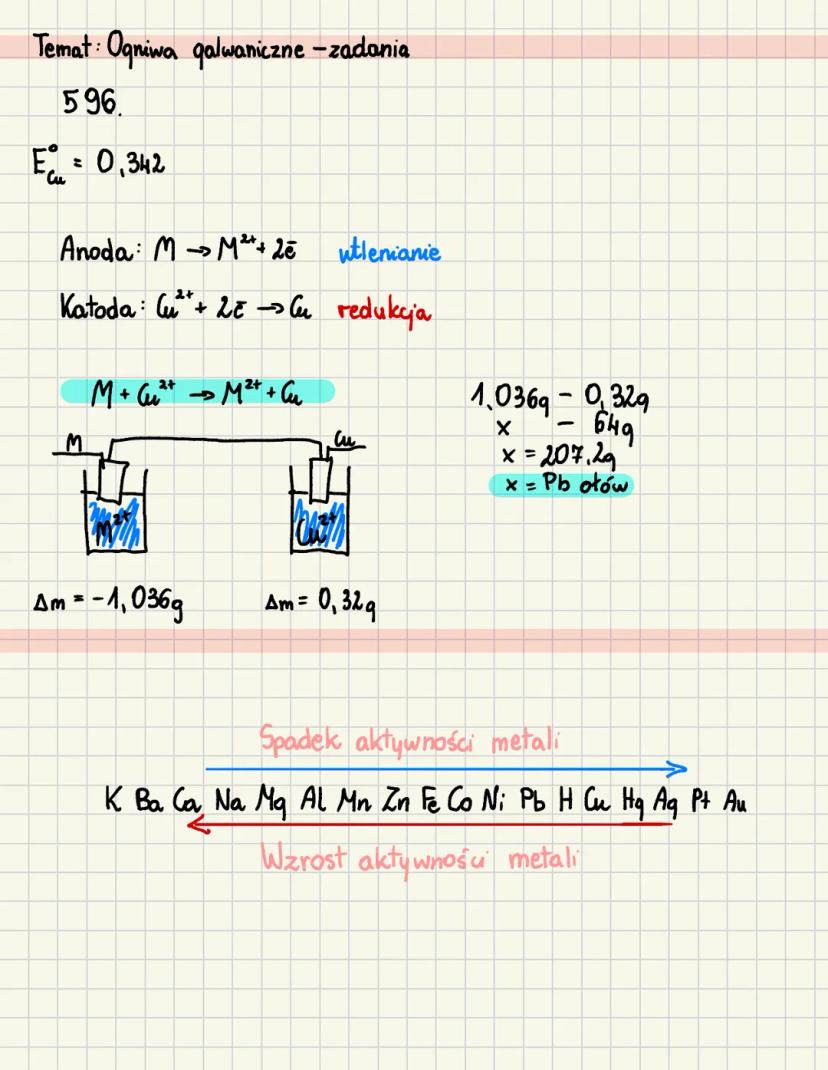 Temat: Ogniwa galwaniczne - zadania
596.
E°Cu = 0,342
Anoda: M → M²⁺ + 2ē utlenianie
Katoda: Cu²⁺ + 2ē → Cu redukcja
M + Cu²⁺ → M²⁺ + Cu
M Cu
M²⁺ Cu²⁺
Δm = -1,036g Δm = 0,32g
1,036g - 0,32g
x - 64g
x = 207,2g
x = Pb ołów
Spadek aktywności metali
K Ba Ca Na Mg Al Mn Zn Fe Co Ni Pb H Cu Hg Ag Pt Au
Wzrost aktywności metali